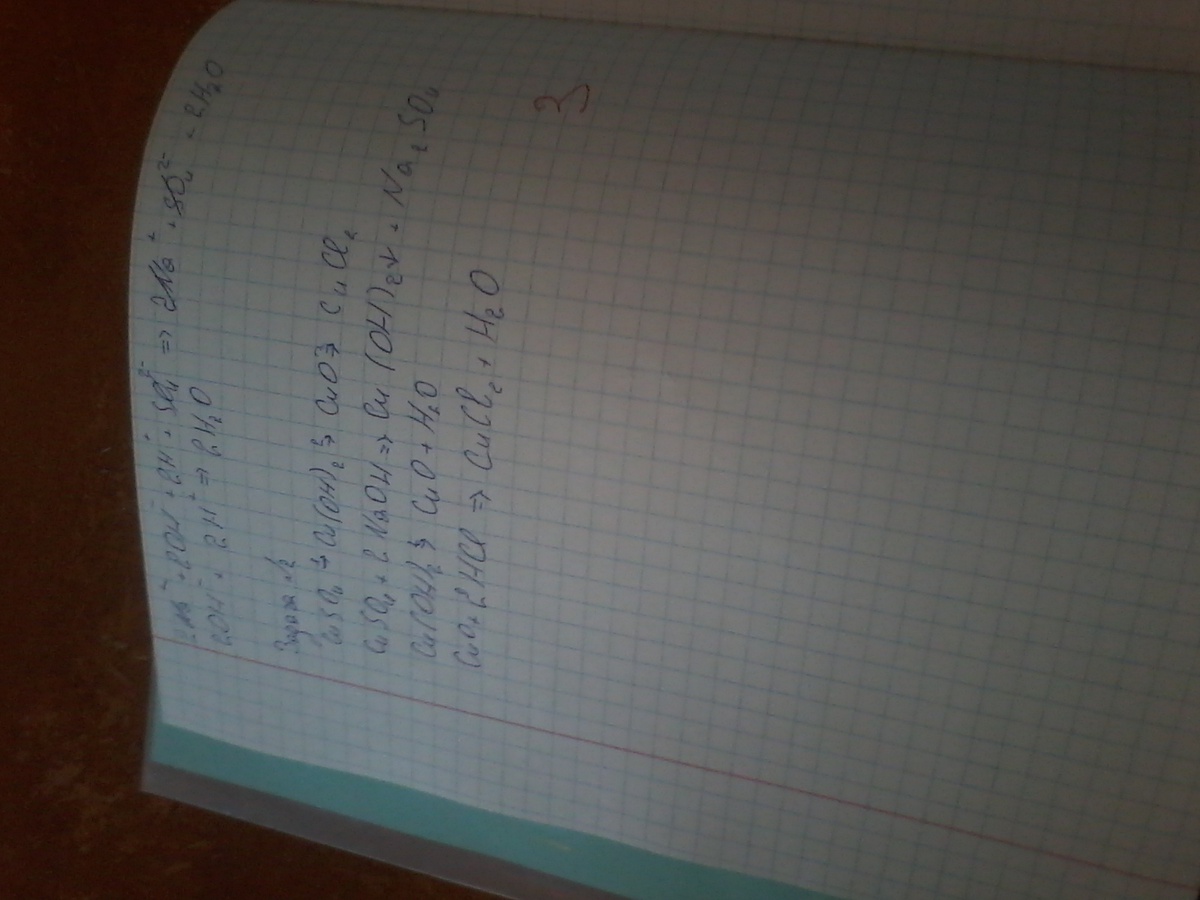 2Na⁺ + 2OH⁻ + 2H⁺ + SO₄²⁻ => 2Na⁺ + SO₄²⁻ + 2H₂O
2OH⁻ + 2H⁺ => 2H₂O
Задача №2
CuSO₄ → Cu(OH)₂ → CuO → CuCl₂
CuSO₄ + 2NaOH => Cu(OH)₂↓ + Na₂SO₄
Cu(OH)₂ → CuO + H₂O
CuO + 2HCl => CuCl₂ + H₂O
3